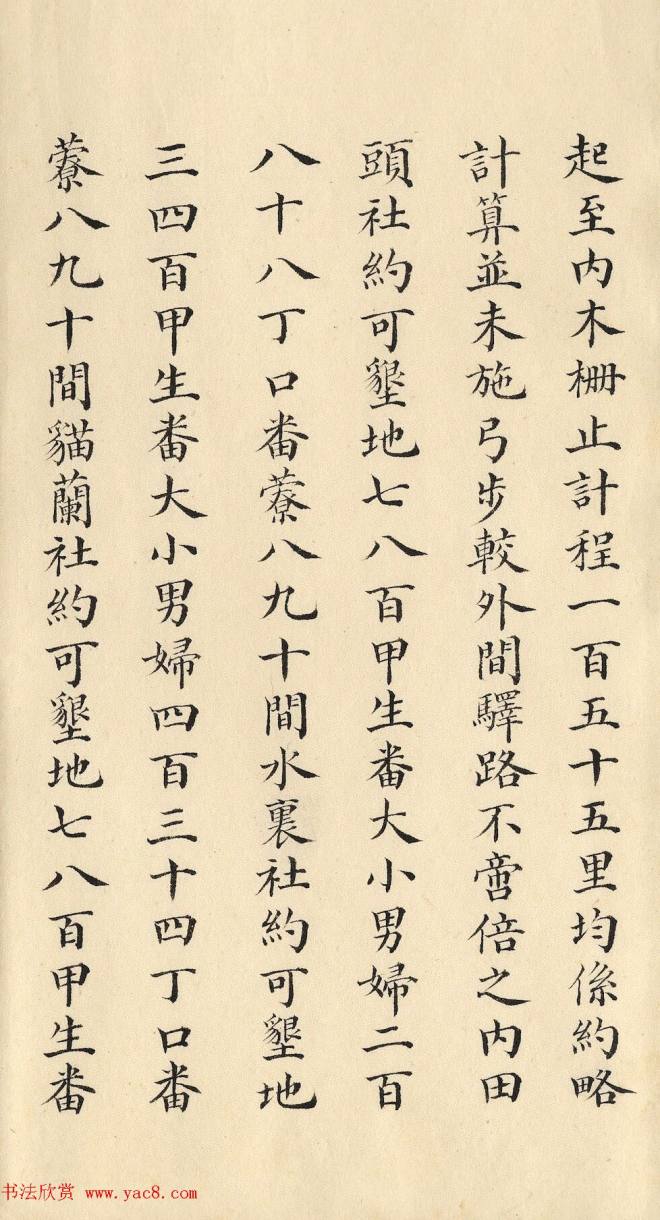 起至内木柵止計程一百五十五里均係約略
計算並未施弓步較外間驛路不啻倍之内田
頭社約可墾地七八百甲生番大小男婦二百
八十八丁口番藔八九十間水裏社約可墾地
三四百甲生番大小男婦四百三十四丁口番
藔八九十間貓蘭社約可墾地七八百甲生番
书法欣赏 www.yac8.com